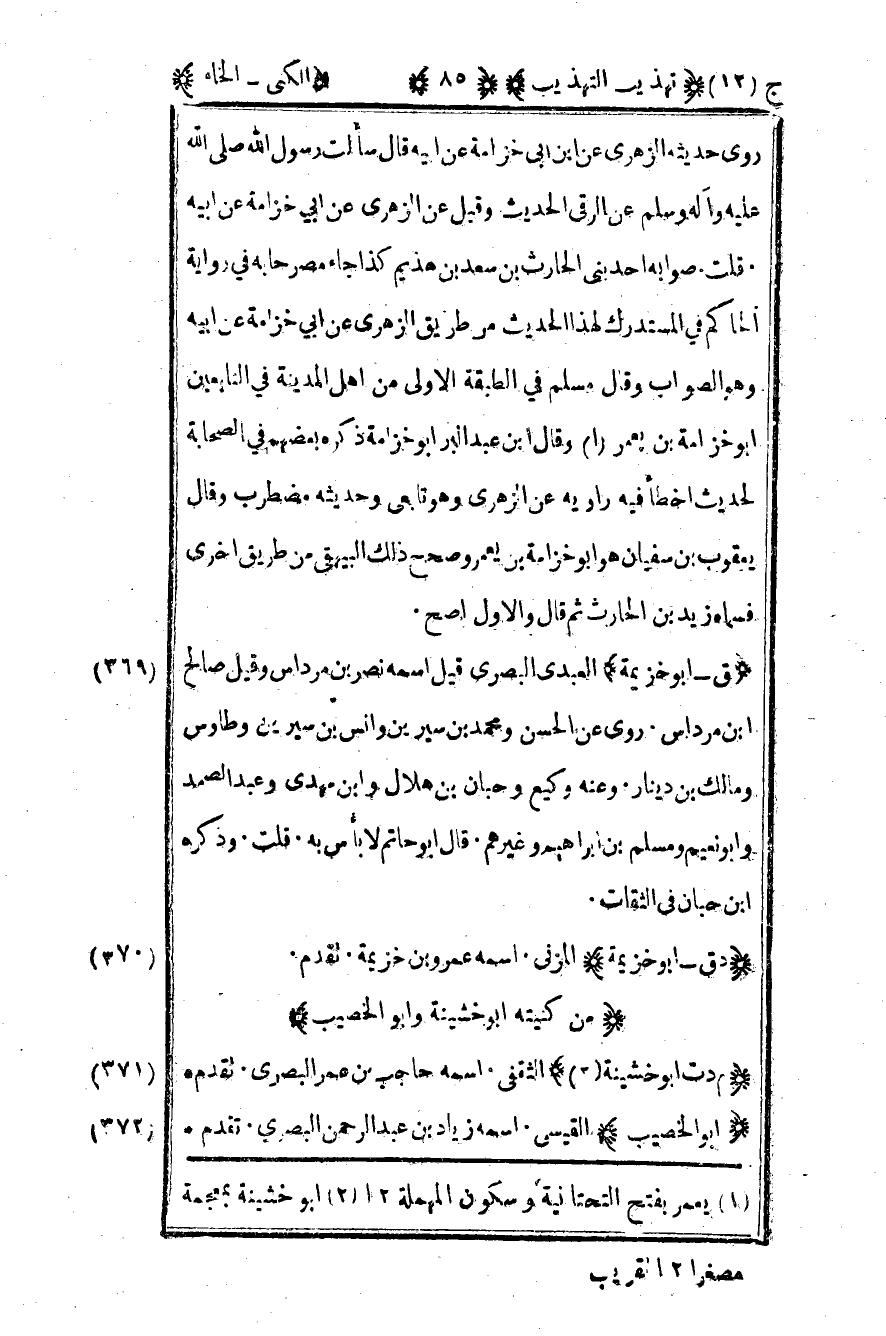 ج (١٢) ﴿ تهذيب التهذيب ﴾ ﴿ ٨٥ ﴾ ﴿ الكنى ـ الخاء ﴾
روى حديثه الزهرى عن ابن ابى خزامة عن ابيه قال سألت رسول الله صلى الله
عليه وآله وسلم عن الرقى الحديث وقيل عن الزهرى عن ابي خزامة عن ابيه
٠ قلت ٠ صوابه احد بنى الحارث بن سعد بن هذيم كذا جاء مصرحا به في رواية
الحاكم في المستدرك لهذا الحديث من طريق الزهرى عن ابي خزامة عن ابيه
وهو الصواب وقال مسلم في الطبقة الاولى من اهل المدينة في التابعين
ابو خزامة بن يعمر (١) وقال ابن عبد البر ابو خزامة ذكره بعضهم في الصحابة
لحديث اخطأ فيه راويه عن الزهرى وهو تابعى وحديثه مضطرب وقال
يعقوب بن سفيان هو ابو خزامة بن يعمر وصحح ذلك البيهقي من طريق اخرى
فسماه زيد بن الحارث ثم قال والاول اصح ٠
﴿ ق ـ ابو خزيمة ﴾ العبدى البصرى قيل اسمه نصر بن مرداس وقيل صالح (٣٦٩)
ابن مرداس ٠ روى عن الحسن ومحمد بن سيرين وانس بن سيرين وطاوس
ومالك بن دينار ٠ وعنه وكيع وحبان بن هلال وابن مهدى وعبد الصمد
وابو نعيم ومسلم بن ابراهيم وغيرهم ٠ قال ابو حاتم لا بأس به ٠ قلت ٠ وذكره
ابن حبان في الثقات ٠
﴿ دق ـ ابو خزيمة ﴾ المزنى ٠ اسمه عمرو بن خزيمة ٠ تقدم ٠ (٣٧٠)
﴿ من كنيته ابو خشينة وابو الخصيب ﴾
﴿ م د ت ابو خشينة (٢) ﴾ الثقفى ٠ اسمه حاجب بن عمر البصرى ٠ تقدم ٠ (٣٧١)
﴿ ابو الخصيب ﴾ القيسى ٠ اسمه زياد بن عبد الرحمن البصري ٠ تقدم ٠ (٣٧٢)
(١) يعمر بفتح التحتانية وسكون المهملة ١٢ (٢) ابو خشينة بمعجمة
مصغرا ١٢ تقريب